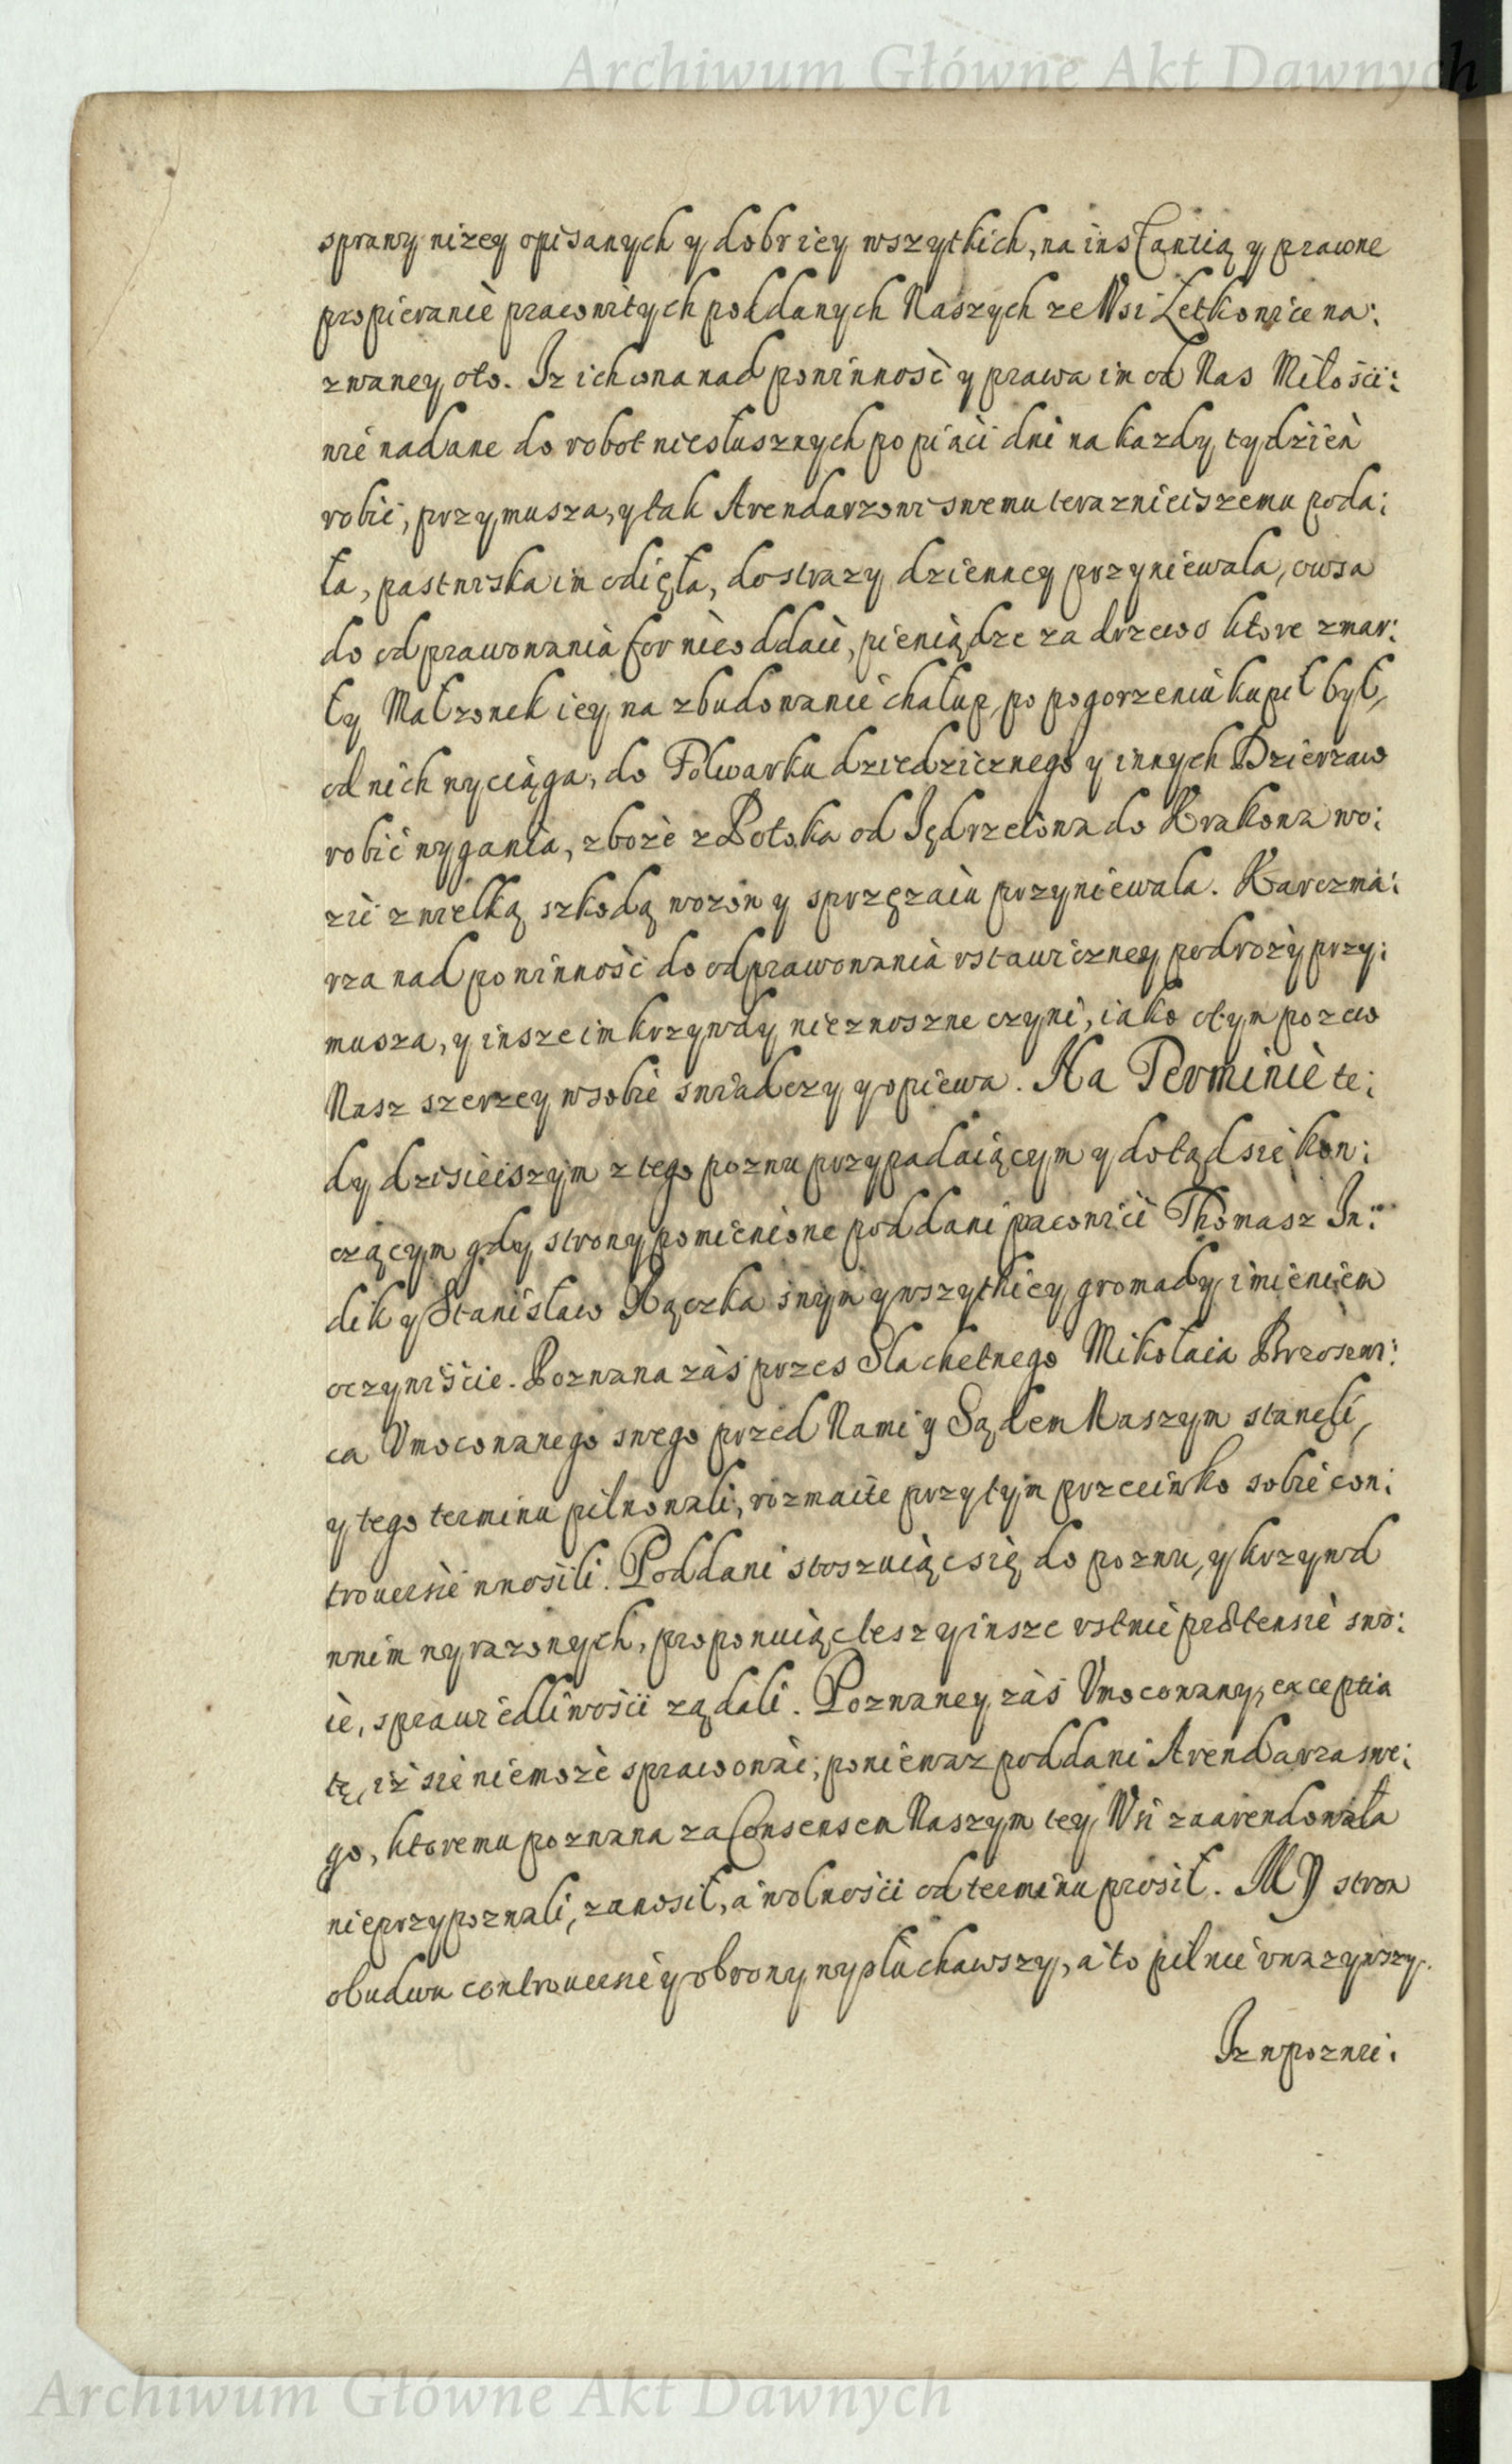 Archiwum Główne Akt Dawnych
sprawy niżey opisanych y dobr iey wszytkich, na instantią y prawne
propieranie pracowitych poddanych Naszych ze Wsi Letkowice na:
zwaney oto. Iz ich ona nad powinność y prawa im od Nas Miłości:
wie nadane do robot niesłusznych po piąci dni na kazdy tydzień
robić, przymusza, y tak Arendarzowi swemu teraznieiszemu poda:
ła, pastwiska im odięła, do strazy dzienney przyniewala, owsa
do odprawowania for nieoddaie, pieniądze za drzewo ktore zmar:
ły Małzonek iey na zbudowanie chałup, po pogorzeniu kupił był,
od nich wyciąga, do Folwarku dziedzicznego y innych Dzierzaw
robić wygania, zboże z Potoka od Iędrzeiowa do Krakowa wo:
zić z wielką szkodą wozow y sprzężaiu przyniewala. Karczma:
rza nad powinność do odprawowania ustawiczney podroży przy:
musza, y insze im krzywdy nieznoszne czyni, iako o tym pozew
Nasz szerzey w sobie swiadczy y opiewa. Na Terminie te:
dy dzisieiszym z tego pozwu przypadaiącym y dotąd się kon:
czącym gdy strony pomienione poddani pracowici Thomasz In:
dik y Stanisław Rączka swym y wszytkiey gromady imieniem
oczywiście. Pozwana zaś przes Slachetnego Mikołaia Brzosewi:
ca Umocowanego swego przed Nami y Sądem Naszym stanęli,
y tego terminu pilnowali, rozmaite przytym przeciwko sobie con:
trouersie wnosili. Poddani stoszuiąc się do pozwu, y krzywd
w nim wyrazonych, proponuiąc tesz y insze ustnie prætensie swo:
ie, sprawiedliwości ządali. Pozwaney zaś Umocowany, exceptia
tę, iż się niemoże sprawować, poniewaz poddani Arendarza swe:
go, ktoremu pozwana za Consensem Naszym tey Wsi zaarendowała
nieprzypozwali, zanosił, a wolności od terminu prosił. MY stron
obudwu controuersie y obrony wysłuchawszy, a to pilnie uwazywszy.
Iz w pozwie:
Archiwum Główne Akt Dawnych